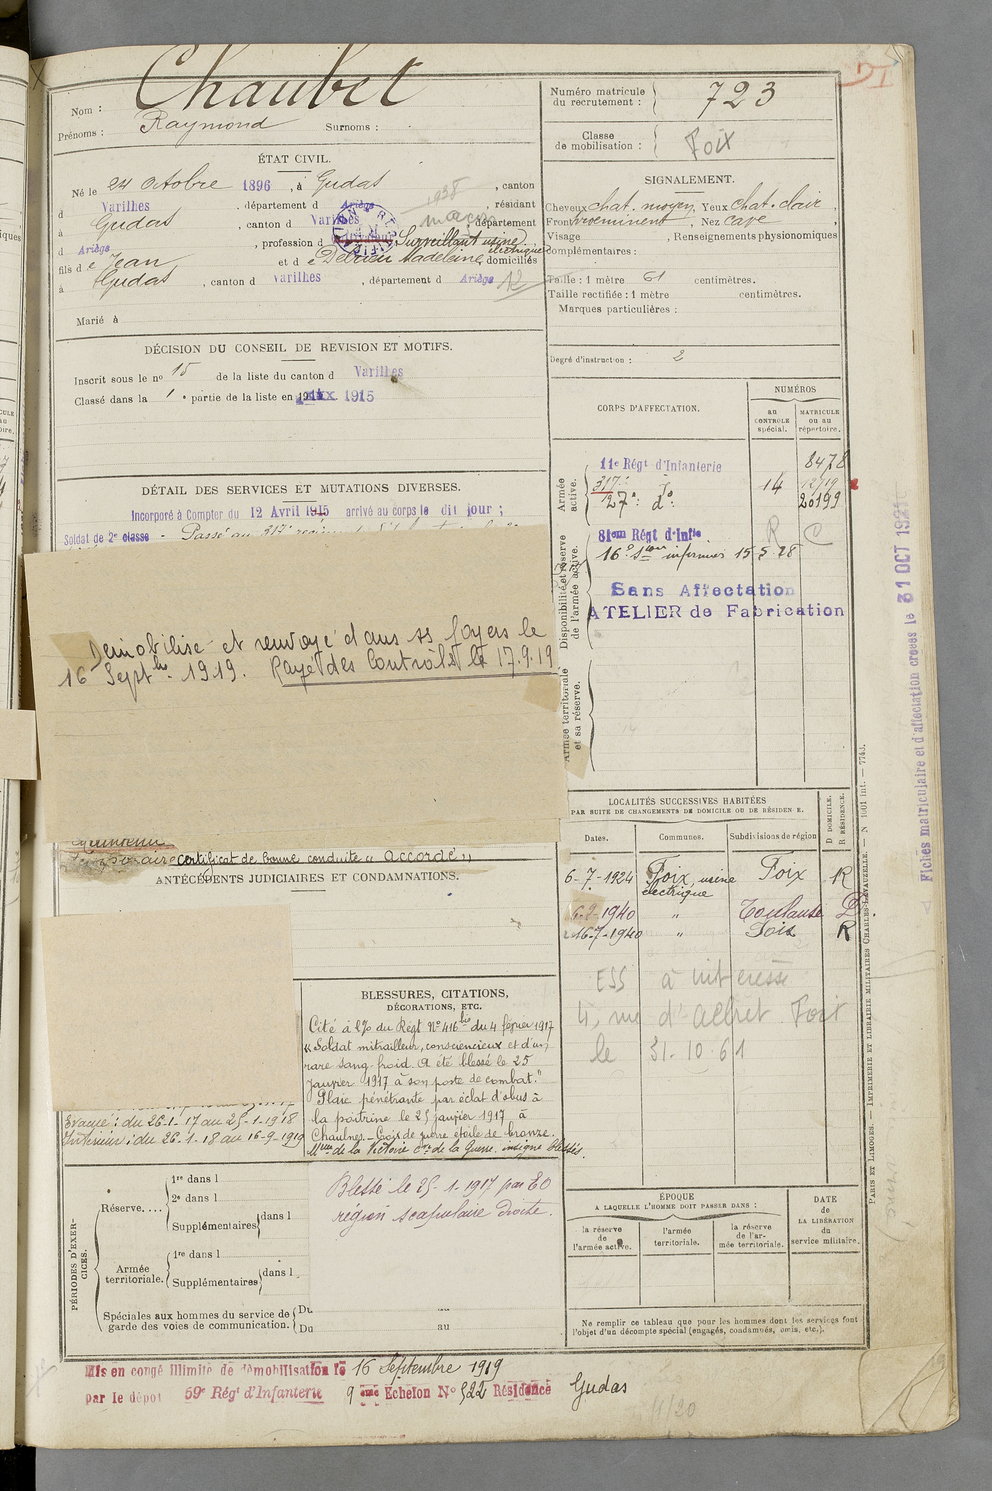 Nom : Chaubet
Prénoms : Raymond Surnoms :
Numéro matricule du recrutement : 723
Classe de mobilisation : Foix
ÉTAT CIVIL.
Né le 24 octobre 1896, à Gudas, canton
d Varilhes, département d Ariège, résidant
à Gudas, canton d Varilhes, département
d Ariège, profession d Surveillant usine électrique
fils de Jean et de Madeleine, domiciliés
à Gudas, canton d Varilhes, département d Ariège 12
Marié à
1938
maçon
SIGNALEMENT.
Cheveux chat. moyen, Yeux chat. clair,
Front, Nez cave
Visage , Renseignements physionomiques
complémentaires :
Taille : 1 mètre 61 centimètres.
Taille rectifiée : 1 mètre centimètres.
Marques particulières :
Degré d'instruction : 2
DÉCISION DU CONSEIL DE REVISION ET MOTIFS.
Inscrit sous le nº 15 de la liste du canton d Varilhes
Classé dans la 1e partie de la liste en 1915
CORPS D'AFFECTATION.
NUMÉROS
AU CONTROLE spécial.
MATRICULE OU AU répertoire.
Armée active.
11e Régt d'Infanterie 8478
317e
27e dº 14 20199
Disponibilité et réserve de l'armée active.
81em Régt d'Infie R C
16e Son infirmiers 15 5 28
Sans Affectation
ATELIER de Fabrication
Armée territoriale et sa réserve.
DÉTAIL DES SERVICES ET MUTATIONS DIVERSES.
Incorporé à Compter du 12 Avril 1915 arrivé au corps le dit jour ;
Soldat de 2e classe - Passé au 317e
Démobilisé et renvoyé dans ss foyers le
16 Septbre 1919. Rayé des Contrôles le 17.9.19
certificat de bonne conduite "accordé"
ANTÉCÉDENTS JUDICIAIRES ET CONDAMNATIONS.
LOCALITÉS SUCCESSIVES HABITÉES
PAR SUITE DE CHANGEMENTS DE DOMICILE OU DE RÉSIDENCE.
Dates. Communes. Subdivisions de région D DOMICILE. R RÉSIDENCE.
6-7-1924 Foix, usine électrique Foix R
6-2-1940 " Toulouse D
16-7-1940 " Foix R
ESS à intéressé
4, rue d'Albret Foix
le 31-10-61
BLESSURES, CITATIONS,
DÉCORATIONS, ETC.
Cité à l'O du Régt Nº 416bis du 4 février 1917
"Soldat mitrailleur, consciencieux et d'un
rare sang froid. A été blessé le 25
Janvier 1917 à son poste de combat."
Plaie pénétrante par éclat d'obus à
la poitrine le 25 janvier 1917 à
Chaulnes - Croix de guerre étoile de bronze.
Mlle de la Victoire Cve de la Guerre. insigne Blessés.
Evacué : du 26-1-17 au 25-1-1918
Intérieur : du 26.1.18 au 16-9-1919
Blessé le 25-1-1917 par EO
région scapulaire droite.
PÉRIODES D'EXERCICES.
Réserve.... 1re dans l
2e dans l
Supplémentaires dans l
Armée territoriale. 1re dans l
Supplémentaires dans l
Spéciales aux hommes du service de garde des voies de communication. Du au
Du au
ÉPOQUE
A LAQUELLE L'HOMME DOIT PASSER DANS :
la réserve de l'armée active.
l'armée territoriale.
la réserve de l'armée territoriale.
DATE de LA LIBÉRATION du service militaire.
Ne remplir ce tableau que pour les hommes dont les services font
l'objet d'un décompte spécial (engagés, condamnés, omis, etc.).
Mis en congé illimité de démobilisation le 16 Septembre 1919
par le dépôt 59e Régt d'Infanterie 9 ème Echelon Nº 522 Résidence Gudas
Fiches matriculaire et d'affectation créées le 31 OCT 19
PARIS ET LIMOGES. — IMPRIMERIE ET LIBRAIRIE MILITAIRES CHARLES-LAVAUZELLE. — N 1001 int. — 774